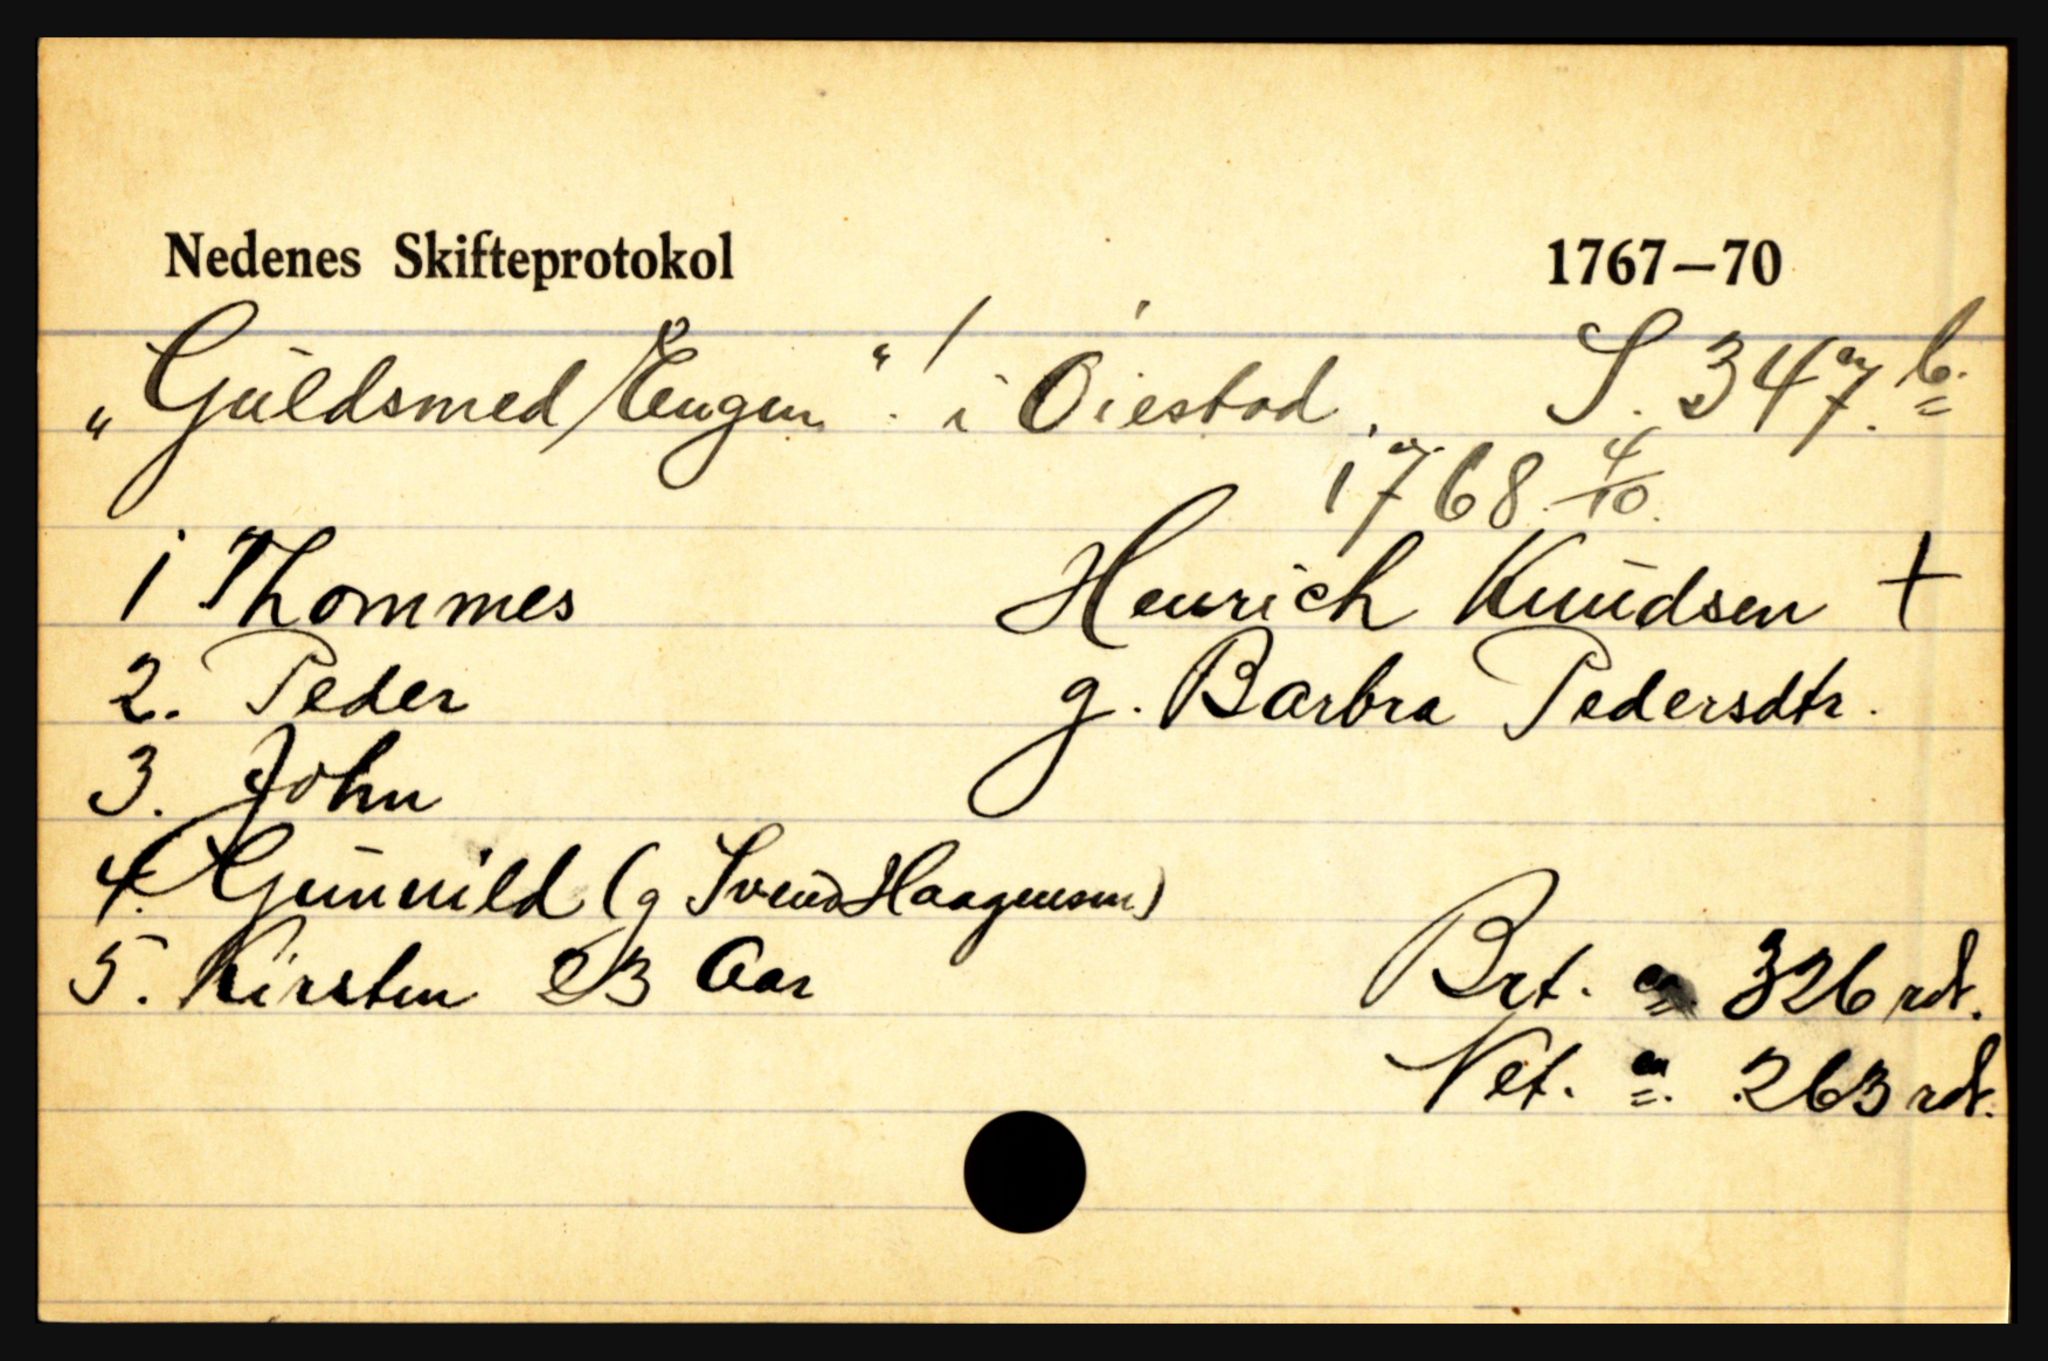 Nedenes Skifteprotokol 1767—70
„Guldsmed Engen“ i Öiestad. S. 347.b.
1768 4/10.
1 Thommes Henrich Knudsen +
2. Peder g. Barbra Pedersdtr.
3. John
4. Gunnild (g Svend Haagensen)
5. Kirsten 23 Aar Brt. 326 rdr.
Net. 263 rdr.